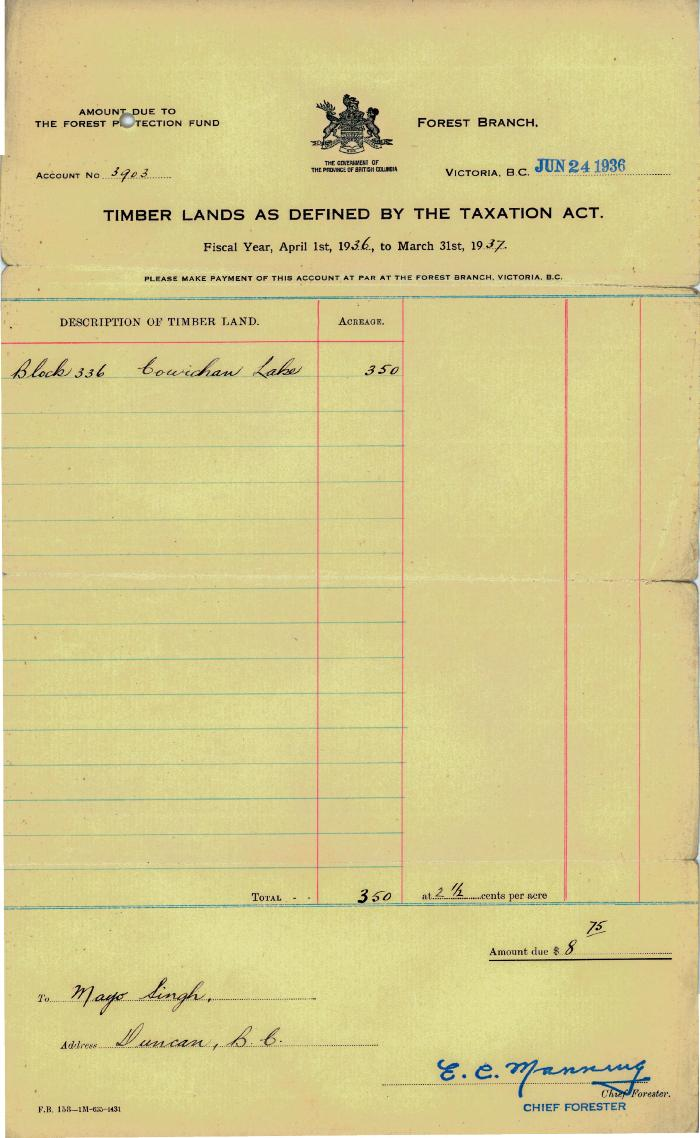 AMOUNT DUE TO
THE FOREST P TECTION FUND
THE GOVERNMENT OF
THE PROVINCE OF BRITISH COLUMBIA
FOREST BRANCH,
ACCOUNT NO 3903
VICTORIA, B.C. JUN 24 1936
TIMBER LANDS AS DEFINED BY THE TAXATION ACT.
Fiscal Year, April 1st, 1936, to March 31st, 1937.
PLEASE MAKE PAYMENT OF THIS ACCOUNT AT PAR AT THE FOREST BRANCH, VICTORIA, B.C.
DESCRIPTION OF TIMBER LAND. ACREAGE.
Block 336 Cowichan Lake 350
TOTAL - - 350 at 2 1/2 cents per acre
Amount due $ 8 75
To Mayo Singh,
Address Duncan, B.C.
E. C. Manning
Chief Forester.
CHIEF FORESTER
F.B. 158—1M-635-4431